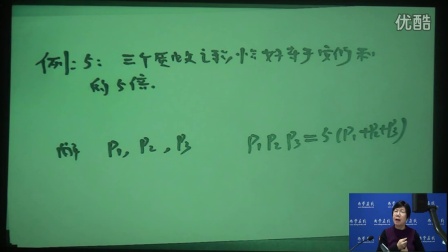 优酷
例5：三个质数之积恰好等于它们和
的5倍.
解 P₁, P₂, P₃ P₁P₂P₃=5(P₁+P₂+P₃)